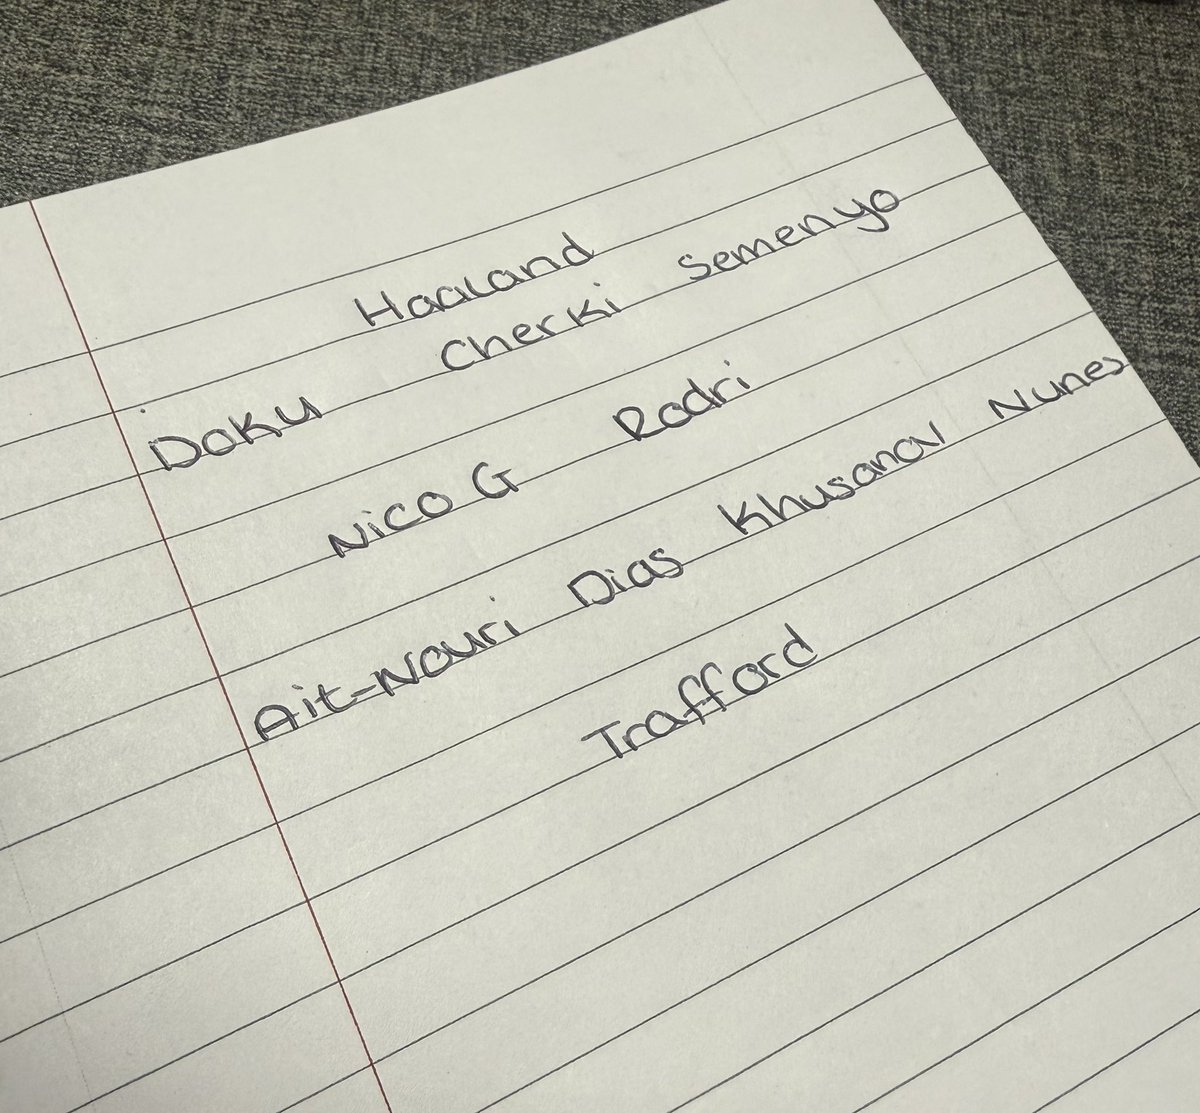 Haaland
Doku Cherki Semenyo
Nico G Rodri
Ait-Nouri Dias Khusanov Nunes
Trafford